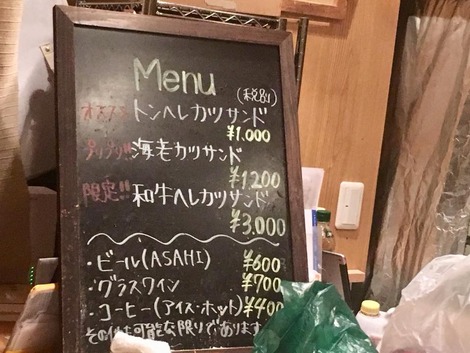 Menu
(税別)
オススメ トンヘレカツサンド
¥1.000
プリプリ!! 海老カツサンド
¥1.200
限定!! 和牛ヘレカツサンド
¥3.000
・ビール(ASAHI) ¥600
・グラスワイン ¥700
・コーヒー(アイス・ホット) ¥400
その他可能な限りであります